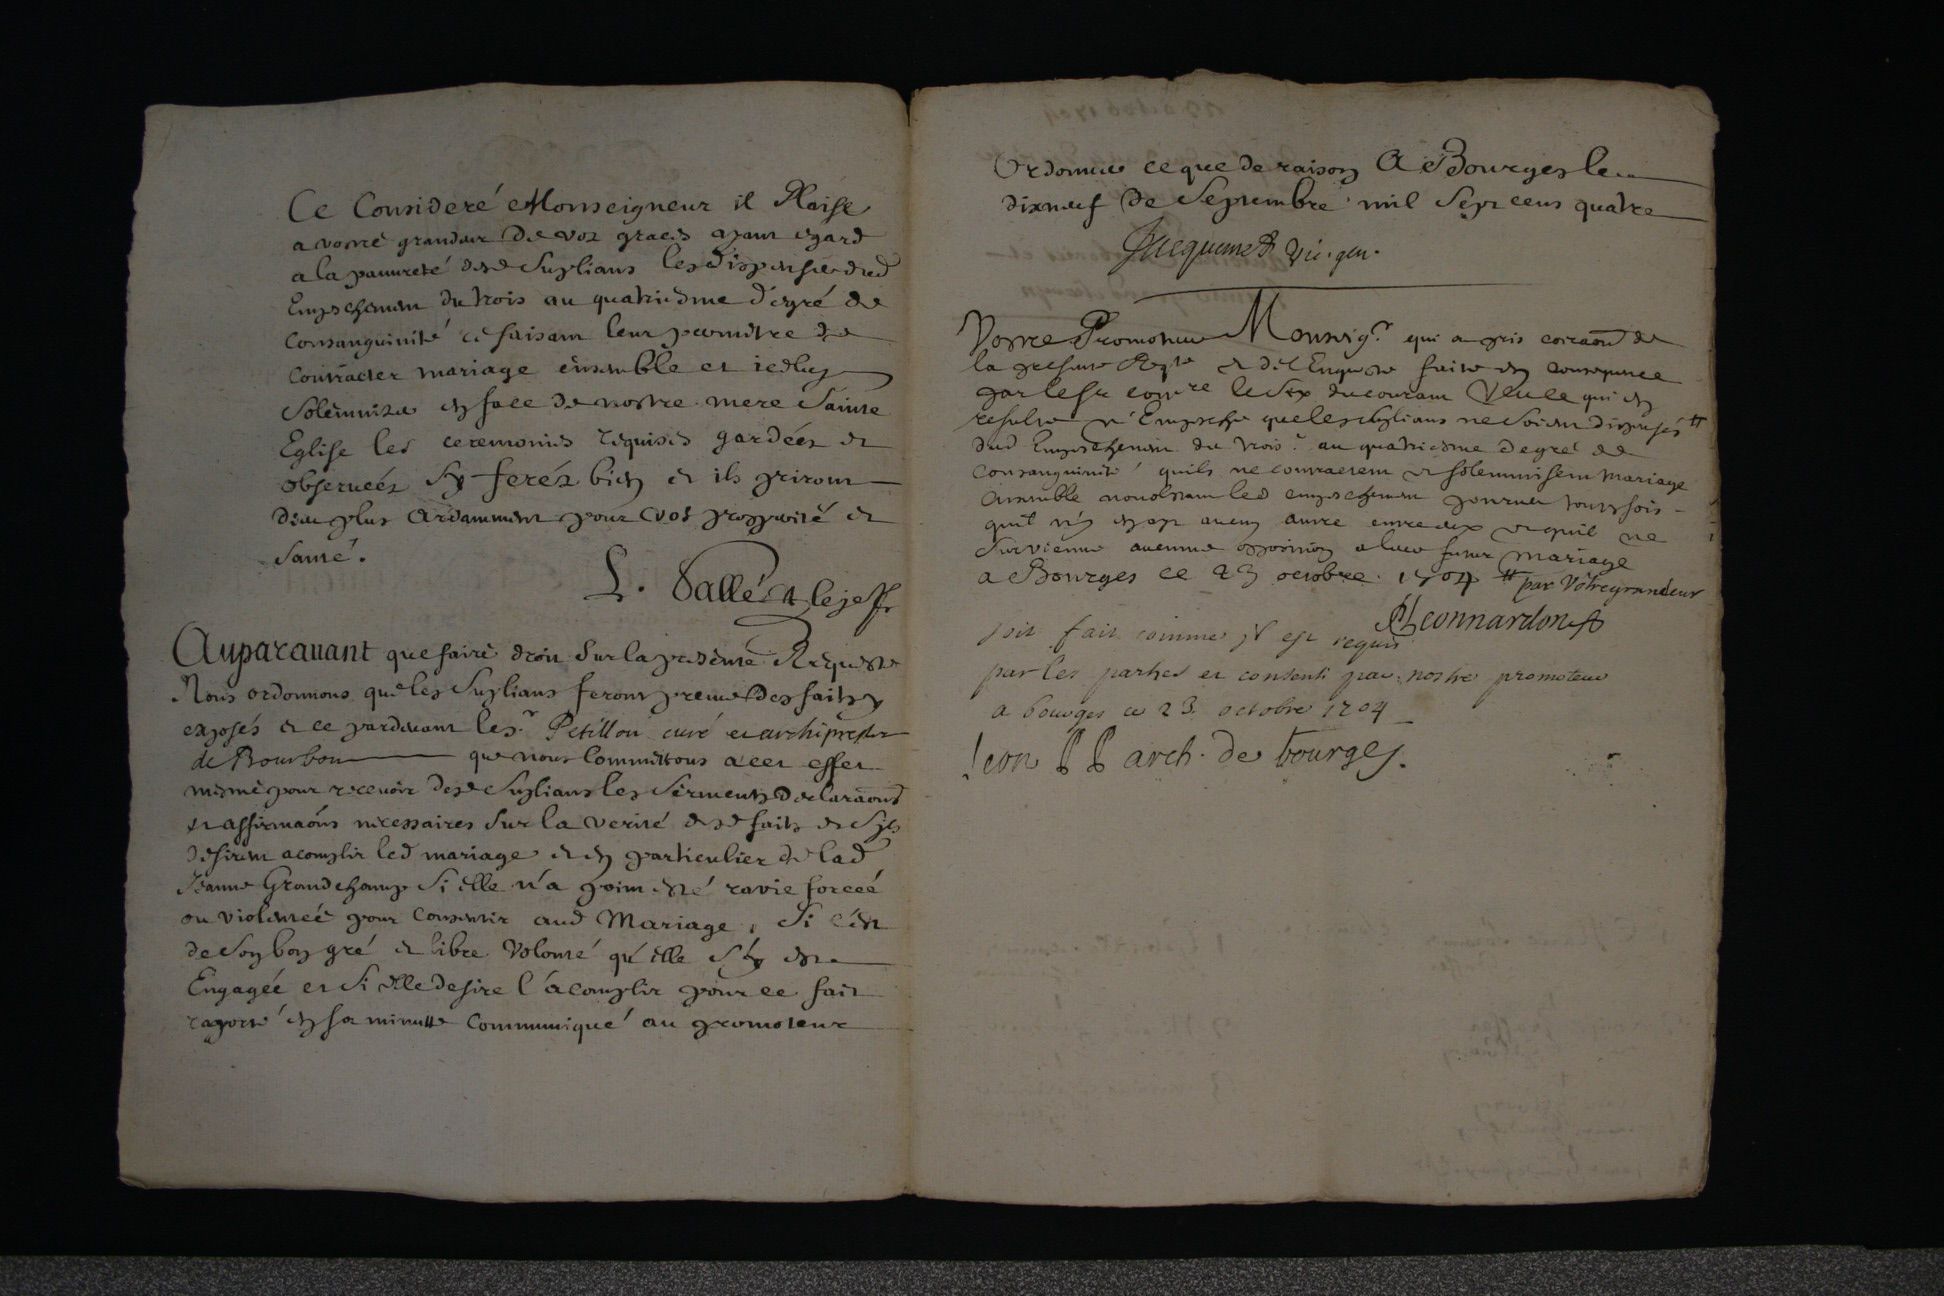 Ce Consideré Monseigneur il Plaise
a vostre grandeur de vos graces ayant egard
a la pauvreté desd suplians les dispenser dud
Empeschement du trois au quatriesme dégré de
Consanguinité ce faisant leur permettre de
Contracter mariage ensemble et icelluy
Solemniser en face de nostre mere Sainte
Eglise les ceremonies requises gardéez et
observéez Sy feréz bien et ils priront
dieu plus Ardamment pour vos prosperité et
santé.
L. Vallée
Auparavant que faire droit Sur la presente Requeste
Nous ordonnons que les Suplians feront preuve des faits
exposés et ce pardevant le sr Petillon curé et archiprestre
de Bourbon que nous Commettons a cet effet
mesme pour recevoir desd Suplians les Serments declaraons
et affirmaons necessaires Sur la verité desd faits et S'ils
desirent acomplir led mariage et en particulier de lad
Jeanne Grandchamp Si elle n'a point esté ravie forceé
ou violenteé pour Consentir aud Mariage, Si c'est
de Son bon gré et libre Volonté qu'elle S'y est
Engageé et Si elle desire l'acomplir pour ce fait
raporté en sa minutte Communiqué au promoteur
Ordonner ce que de raison A Bourges le
dixneuf de Septembre mil Sept cens quatre
Jacquemet vic. gen.
Vostre Promoteur Monseigr. qui a pris coicaon de
la presente Reqte et de l'Enqueste faite en consequence
par le sr le Six du courant Veu ce qui en
resulte n'Empesche que les suplians ne Soient dispensés #
dud Empeschement du trois.e au quatriesme degré de
Consanguinité quils ne contractent et solemnisent mariage
Ensemble nonobstant led empeschement pourveu toutesfois
quil n'y en ayt aucun autre entre eux et quil ne
Survienne aucunne opposition a leur futur mariage
a Bourges ce 23 octobre 1704 # par Vôtre grandeur
Leonnardon
soit fait comme il est requis
par les parties et consenti par nostre promoteur
a bourges ce 23. octobre 1704
leon P P arch. de bourges.